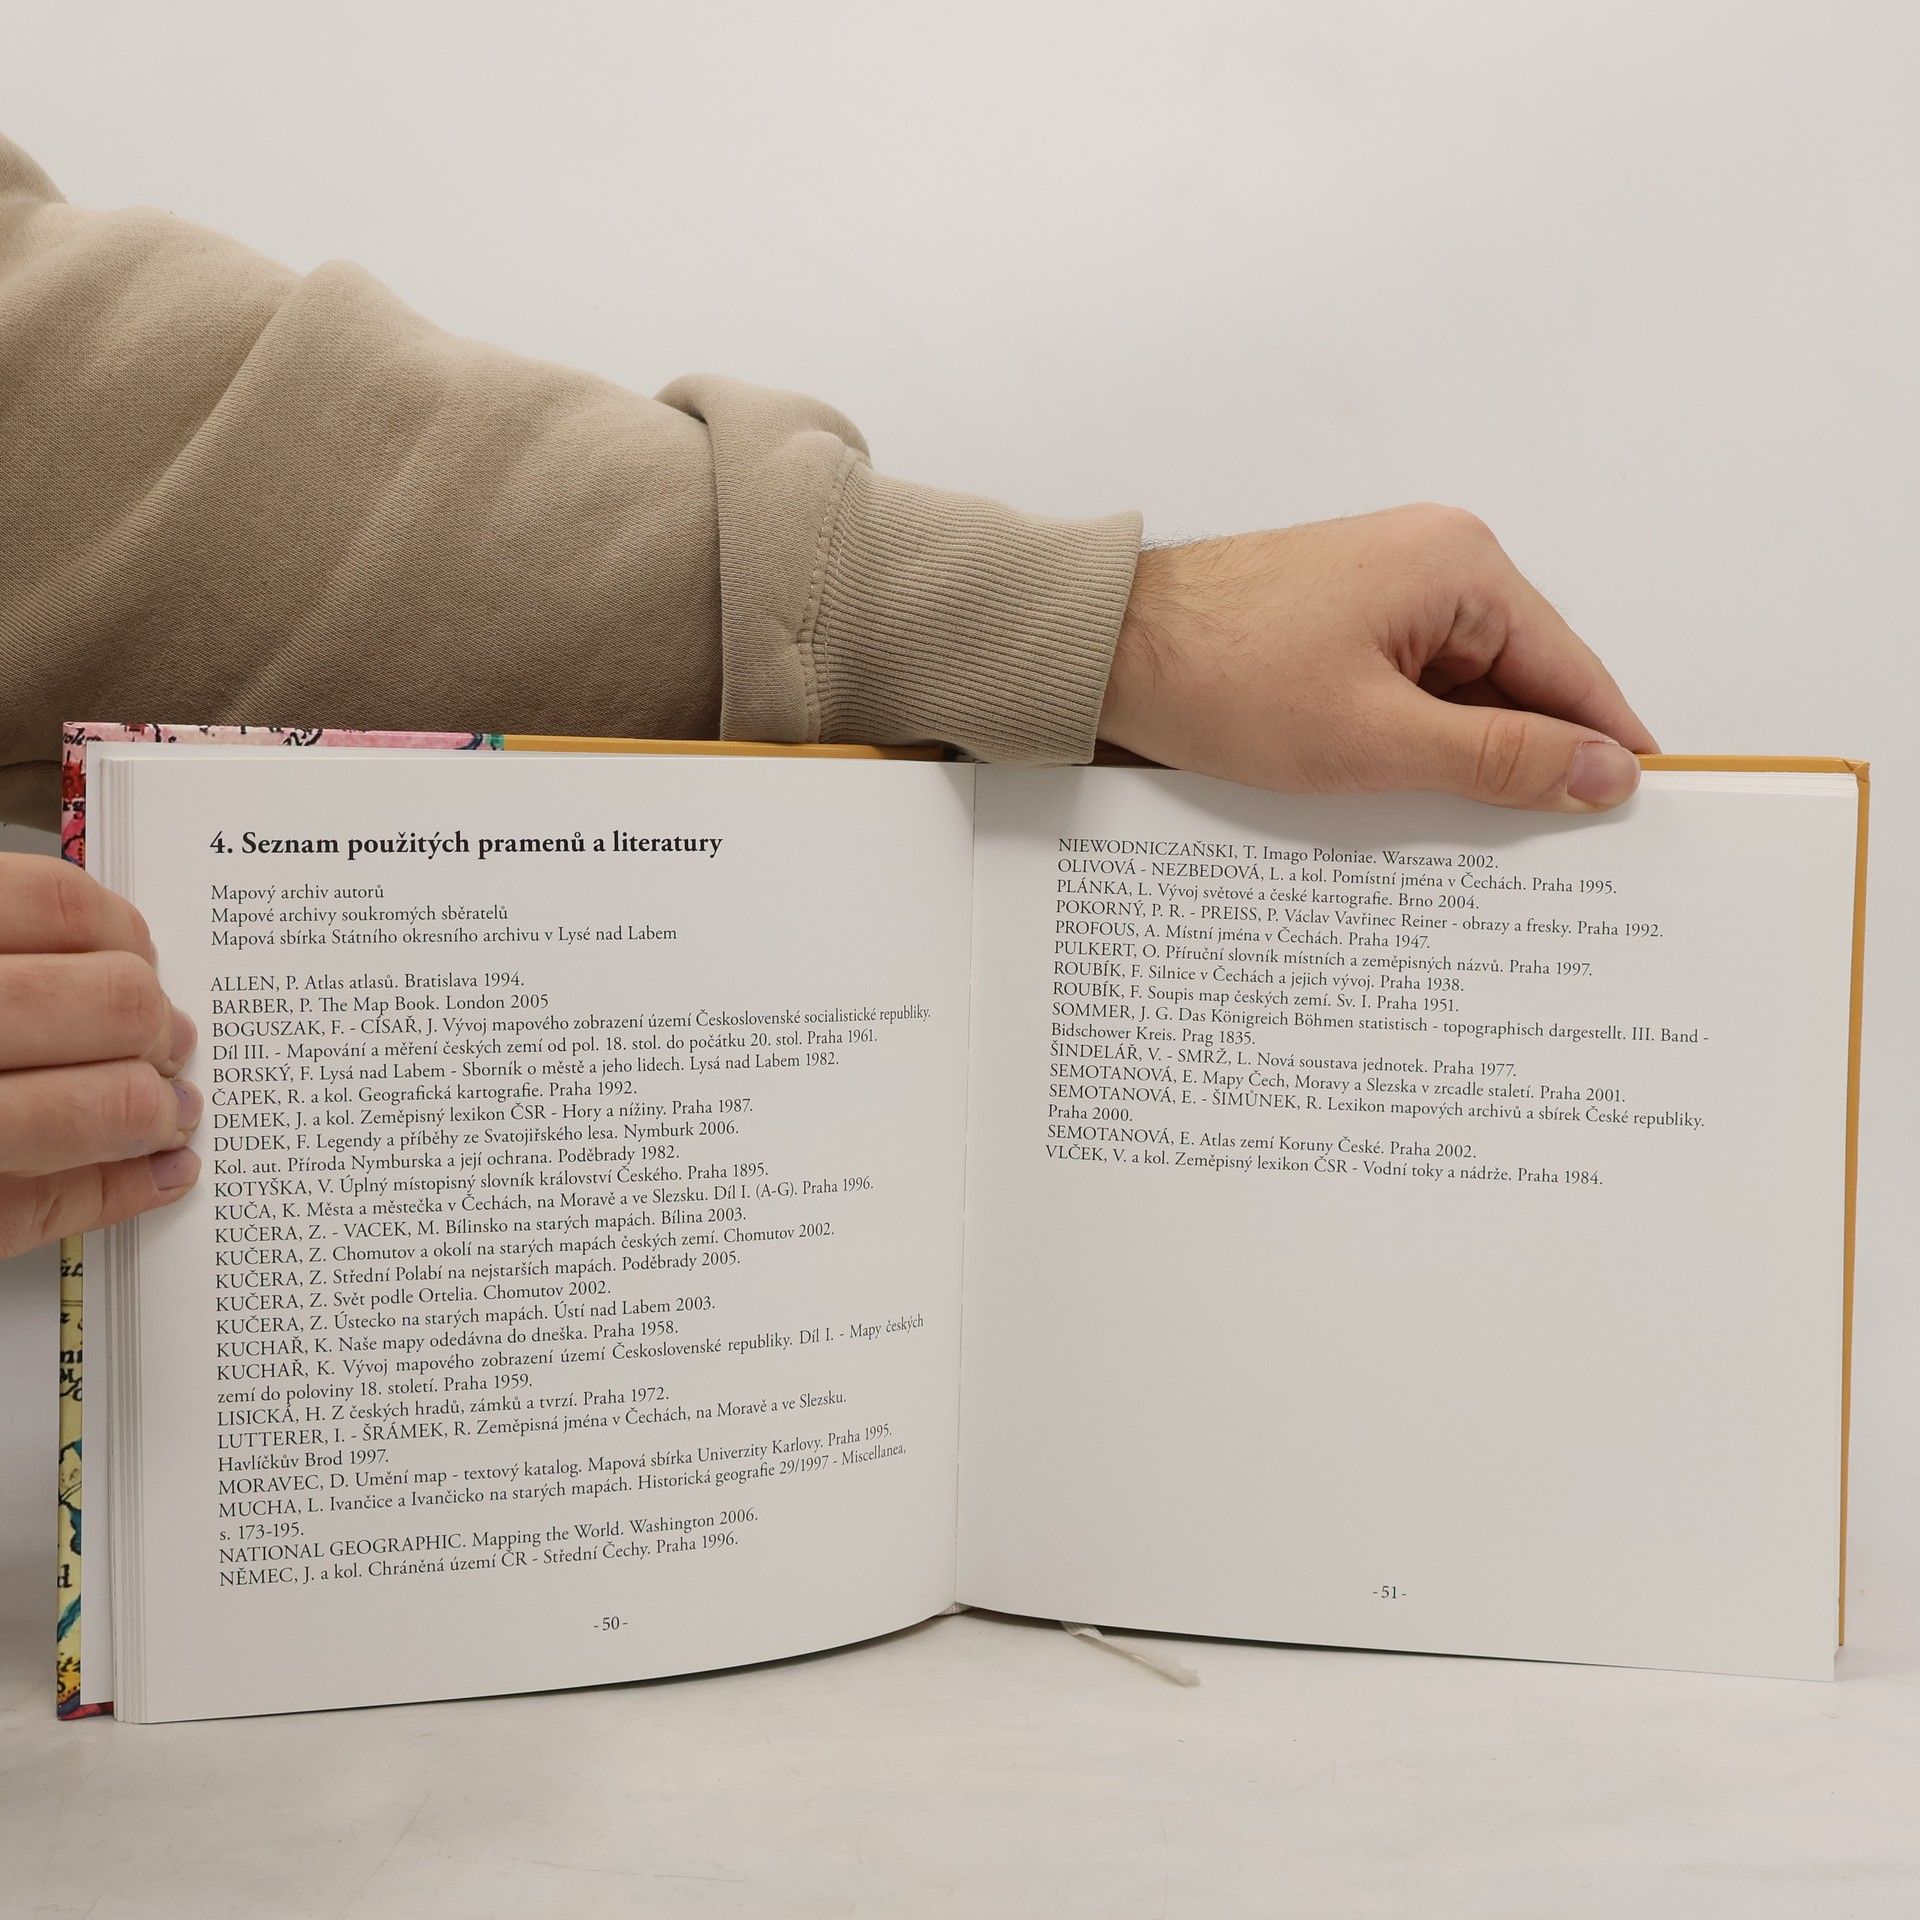 4. Seznam použitých pramenů a literatury
Mapový archiv autorů
Mapové archivy soukromých sběratelů
Mapová sbírka Státního okresního archivu v Lysé nad Labem
ALLEN, P. Atlas atlasů. Bratislava 1994.
BARBER, P. The Map Book. London 2005
BOGUSZAK, F. - CÍSAŘ, J. Vývoj mapového zobrazení území Československé socialistické republiky.
Díl III. - Mapování a měření českých zemí od pol. 18. stol. do počátku 20. stol. Praha 1961.
BORSKÝ, F. Lysá nad Labem - Sborník o městě a jeho lidech. Lysá nad Labem 1982.
ČAPEK, R. a kol. Geografická kartografie. Praha 1992.
DEMEK, J. a kol. Zeměpisný lexikon ČSR - Hory a nížiny. Praha 1987.
DUDEK, F. Legendy a příběhy ze Svatojiřského lesa. Nymburk 2006.
Kol. aut. Příroda Nymburska a její ochrana. Poděbrady 1982.
KOTYŠKA, V. Úplný místopisný slovník království Českého. Praha 1895.
KUČA, K. Města a městečka v Čechách, na Moravě a ve Slezsku. Díl I. (A-G). Praha 1996.
KUČERA, Z. - VACEK, M. Bílinsko na starých mapách. Bílina 2003.
KUČERA, Z. Chomutov a okolí na starých mapách českých zemí. Chomutov 2002.
KUČERA, Z. Střední Polabí na nejstarších mapách. Poděbrady 2005.
KUČERA, Z. Svět podle Ortelia. Chomutov 2002.
KUČERA, Z. Ústecko na starých mapách. Ústí nad Labem 2003.
KUCHAŘ, K. Naše mapy odedávna do dneška. Praha 1958.
KUCHAŘ, K. Vývoj mapového zobrazení území Československé republiky. Díl I. - Mapy českých
zemí do poloviny 18. století. Praha 1959.
LISICKÁ, H. Z českých hradů, zámků a tvrzí. Praha 1972.
LUTTERER, I. - ŠRÁMEK, R. Zeměpisná jména v Čechách, na Moravě a ve Slezsku.
Havlíčkův Brod 1997.
MORAVEC, D. Umění map - textový katalog. Mapová sbírka Univerzity Karlovy. Praha 1995.
MUCHA, L. Ivančice a Ivančicko na starých mapách. Historická geografie 29/1997 - Miscellanea,
s. 173-195.
NATIONAL GEOGRAPHIC. Mapping the World. Washington 2006.
NĚMEC, J. a kol. Chráněná území ČR - Střední Čechy. Praha 1996.
- 50 -
NIEWODNICZAŇSKI, T. Imago Poloniae. Warszawa 2002.
OLIVOVÁ - NEZBEDOVÁ, L. a kol. Pomístní jména v Čechách. Praha 1995.
PLÁNKA, L. Vývoj světové a české kartografie. Brno 2004.
POKORNÝ, P. R. - PREISS, P. Václav Vavřinec Reiner - obrazy a fresky. Praha 1992.
PROFOUS, A. Místní jména v Čechách. Praha 1947.
PULKERT, O. Příruční slovník místních a zeměpisných názvů. Praha 1997.
ROUBÍK, F. Silnice v Čechách a jejich vývoj. Praha 1938.
ROUBÍK, F. Soupis map českých zemí. Sv. I. Praha 1951.
SOMMER, J. G. Das Königreich Böhmen statistisch - topographisch dargestellt. III. Band -
Bidschower Kreis. Prag 1835.
ŠINDELÁŘ, V. - SMRŽ, L. Nová soustava jednotek. Praha 1977.
SEMOTANOVÁ, E. Mapy Čech, Moravy a Slezska v zrcadle staletí. Praha 2001.
SEMOTANOVÁ, E. - ŠIMŮNEK, R. Lexikon mapových archivů a sbírek České republiky.
Praha 2000.
SEMOTANOVÁ, E. Atlas zemí Koruny České. Praha 2002.
VLČEK, V. a kol. Zeměpisný lexikon ČSR - Vodní toky a nádrže. Praha 1984.
- 51 -